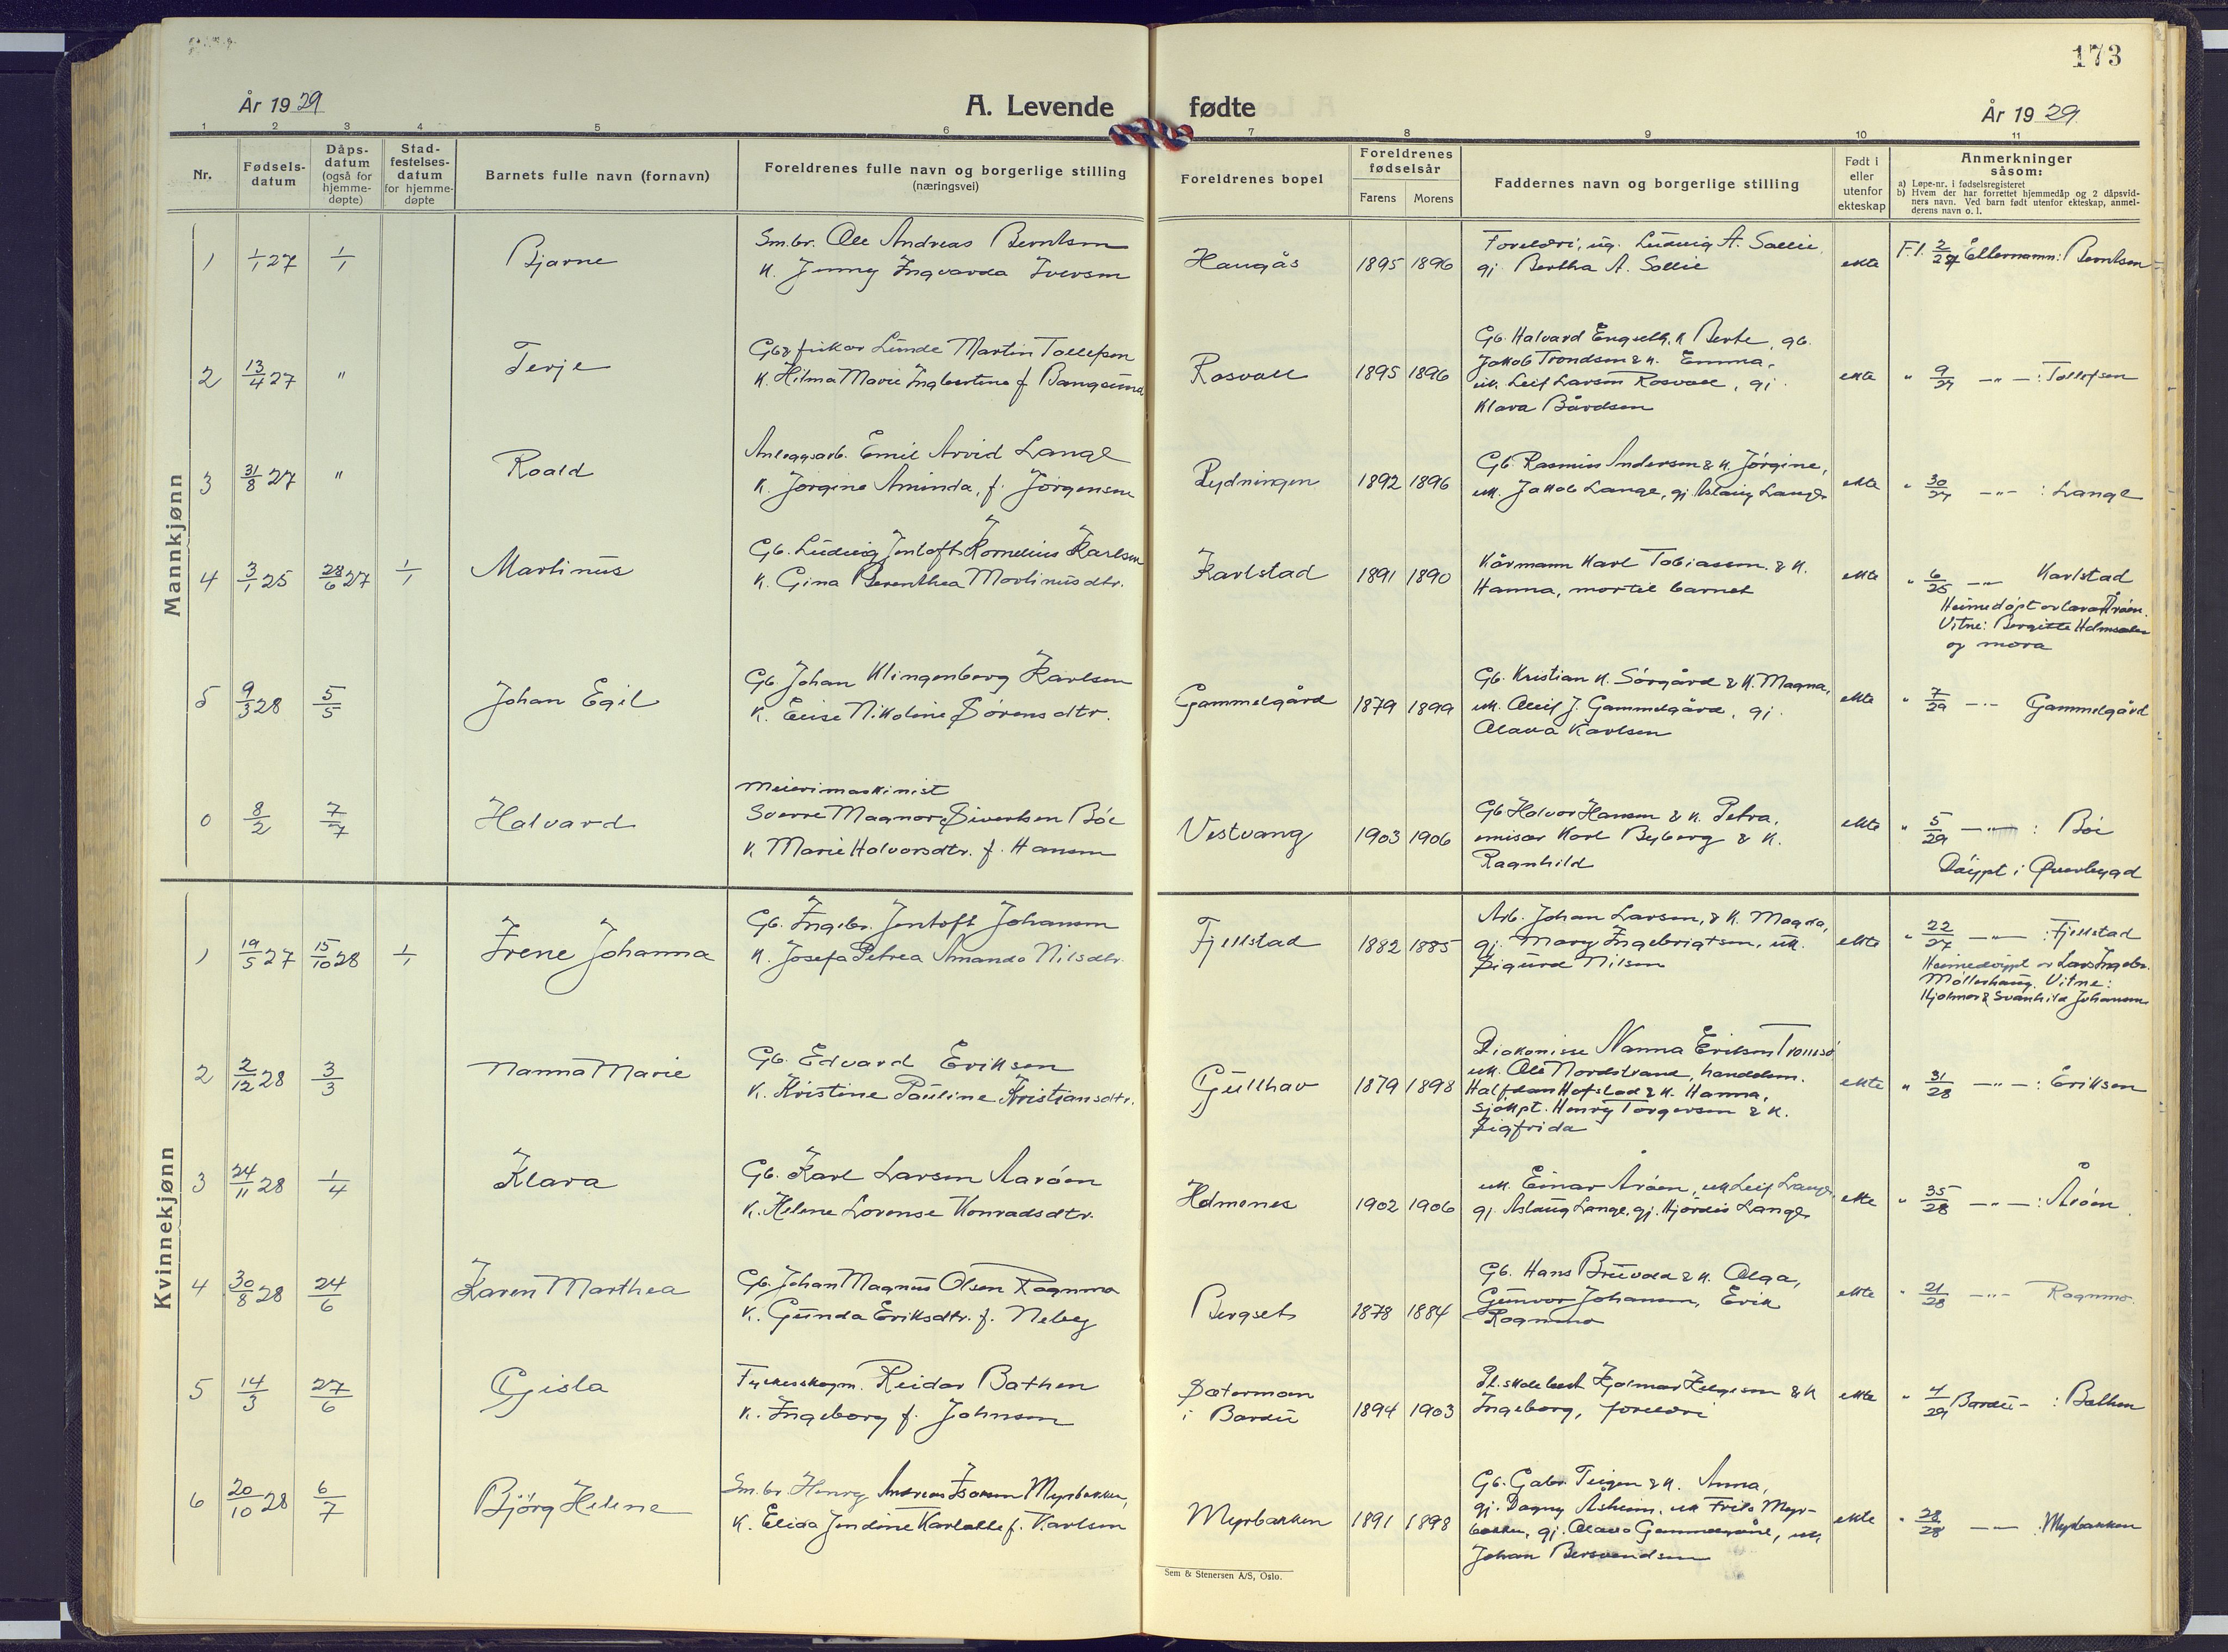 173
År 1929
A. Levende fødte
År 1929
1 2 3 4 5 6 7 8 9 10 11
Nr.
Fødsels-
datum
Dåps-
datum
(også for
hjemme-
døpte)
Stad-
festelses-
datum
for hjemme-
døpte
Barnets fulle navn (fornavn)
Foreldrenes fulle navn og borgerlige stilling
(næringsvei)
Foreldrenes bopel
Foreldrenes
fødselsår
Farens Morens
Faddernes navn og borgerlige stilling
Født i
eller
utenfor
ekteskap
Anmerkninger
såsom:
a) Løpe-nr. i fødselsregisteret
b) Hvem der har forrettet hjemmedåp og 2 dåpsvid-
ners navn. Ved barn født utenfor ekteskap, anmel-
derens navn o. l.
Mannkjønn
1 1/1 27 1/1 Bjarne
Sm.br. Ole Andreas Berntsen
K. Jenny Ingvarda Iversen
Haugås 1895 1896
Foreldri, ug. Ludvig A. Sollie
gj Bertha A. Sollie
ekte
F.l. 2/27 Etternamn: Berntsen
2 13/4 27 " Terje
Gb & fiskar Lunde Martin Tollefsen
K. Hilma Marie Ingbertine f. Bangsund
Rosvoll 1895 1896
Gb. Halvard Engseth, K Berte, gb.
Jakob Trondsen & K. Emma,
uk. Leif Larsen Rosvoll, gj.
Klara Bårdsen
ekte
" 9/27 — " — : Tollefsen
3 31/8 27 " Roald
Anleggsarb. Emil Arvid Lange
K. Jørgine Aminda, f. Jørgensen
Rydningen 1892 1896
Gb. Rasmus Andersen & K. Jørgine,
uk. Jakob Lange, gj Aslaug Lange
ekte
" 30/27 — " — : Lange
4 3/1 25 28/6 27 1/1 Martinus
Gb. Ludvig Jentoft Kornelius Karlsen
K. Gina Berenthea Martinusdtr.
Karlstad 1891 1890
Kårmann Karl Tobiassen & K.
Hanna, mor til barnet
ekte
" 6/25 — " — Karlstad
Heimedøpt av Lars Årøen.
Vitne: Bergitte Holmsetn
og mora
5 9/3 28 5/5 Johan Egil
Gb. Johan Klingenberg Karlsen
K. Elise Nikoline Sørensdtr.
Gammelgård 1879 1899
Gb. Kristian K. Sørgård & K. Magna,
uk. Oleif J. Gammelgård, gj.
Olava Karlsen
ekte
" 7/29 — " — Gammelgård
0 8/2 7/7 Halvard
Meierimaskinist
Sverre Magnor Sivertsen Bøe
K. Marie Halvorsdtr. f. Hansen
Vestvang 1903 1906
Gb Halvor Hansen & K. Petra,
emisær Karl Byberg & K.
Ragnhild
ekte
" 5/29 — " — : Bøe
Døypt i Øverbygd
Kvinnekjønn
1 19/5 27 15/10 28 1/1 Irene Johanna
Gb. Ingebr. Jentoft Johansen
K. Josefa Petrea Amanda Nilsdtr.
Fjellstad 1882 1885
Arb. Johan Larsen, & K. Magda,
gj. Mary Ingebrigtsen, uk.
Sigurd Nilsen
ekte
" 22/27 — " — : Fjellstad
Heimedøypt av Lars Ingebr.
Møllerhaug. Vitne:
Hjalmar & Svanhild Johansen
2 2/12 28 3/3 Nanna Marie
Gb. Edvard Eriksen
K. Kristine Pauline Kristiansdtr.
Gullhav 1879 1898
Diakonisse Nanna Eriksen Tromsø
uk. Ole Nordstrand, handelsm.
Halfdan Hofstad & K. Hanna,
Sjøkpt. Henry Torgersen & K.
Sigfrida
ekte
" 31/28 — " — : Eriksen
3 24/11 28 1/4 Klara
Gb. Karl Larsen Aarøen
K. Helene Lorense Konradsdtr.
Holmenes 1902 1906
uk. Einar Årøen, uk Leif Lange,
gj. Aslaug Lange, gj. Hjørdis Lange
ekte
" 35/28 — " — : Årøen
4 30/8 28 24/6 Karen Marthea
Gb. Johan Magnus Olsen Rognmo
K. Gunda Eriksdtr. f. Neby
Bergset 1878 1884
Gb. Hans Bruvold & K. Olga,
Gunvor Johansen, Erik
Rognmo
ekte
" 21/28 — " — Rognmo.
5 14/3 27/6 Gisla
Fylkesskogm. Reidar Bathen
K. Ingeborg f. Johnsen
Sætermoen
i Bardu 1894 1903
Pl.skolebest Hjalmar Helgesen & K
Ingeborg, foreldri
ekte
" 4/29 Bardu — : Bathen
6 20/10 28 6/7 Bjørg Helene
Sm.br. Henry Andreas Isaksen Myrbakken,
K. Elida Jendine Karlotte f. Karlsen
Myrbakken 1891 1898
Gb. Gabr. Teigen & K. Anna,
gj. Dagny Åsheim, uk Frits Myr-
bakken, gj. Olava Gammelgård, uk
Johan Bersvendsen
ekte
" 28/28 — " — : Myrbakken
Sem & Stenersen A/S, Oslo.